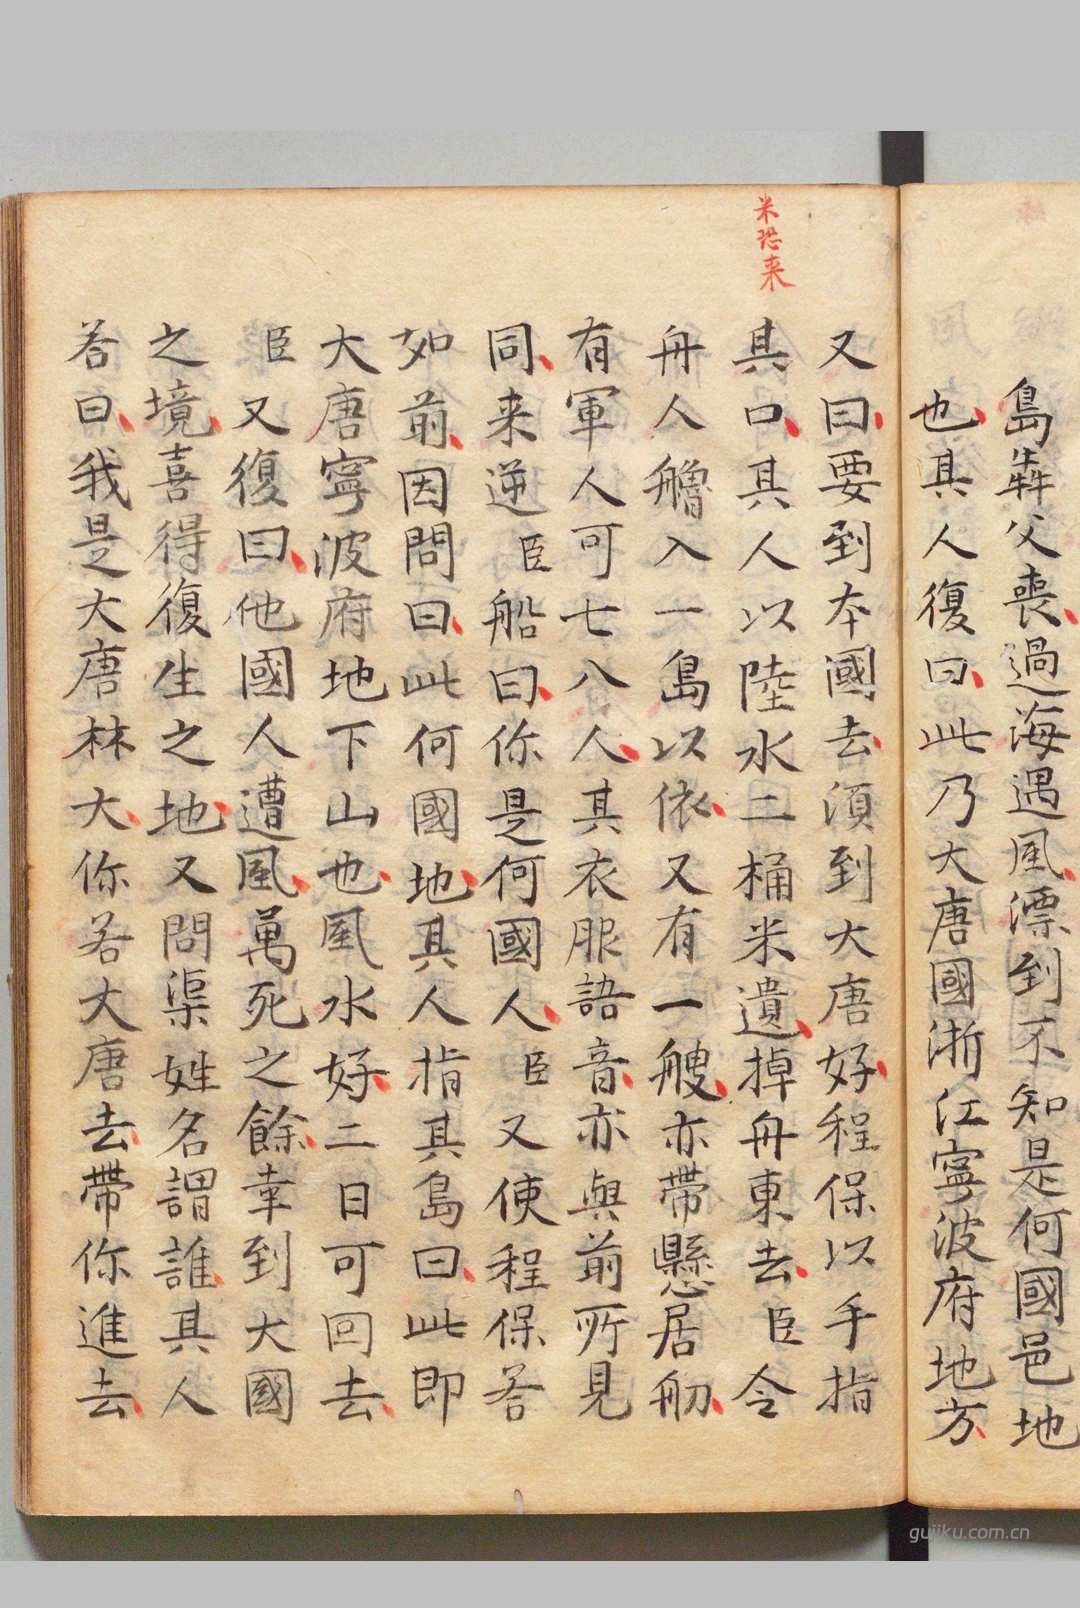 島犇父喪過海遇風漂到不知是何國邑地
也其人復曰此乃大唐國浙江寧波府地方
又曰要到本國去須到大唐好程保以手指
米恐来
其口其人以陸水二桶米遺掉舟東去臣令
舟人艪入一島以依又有一艘亦帶懸居舠
有軍人可七八人其衣服語音亦與前所見
同来逆臣船曰你是何國人臣又使程保荅
如前因問曰此何國地其人指其島曰此即
大唐寧波府地下山也風水好二日可回去
臣又復曰他國人遭風萬死之餘幸到大國
之境喜得復生之地又問渠姓名謂誰其人
荅曰我是大唐林大你若大唐去帶你進去
gujiku.com.cn